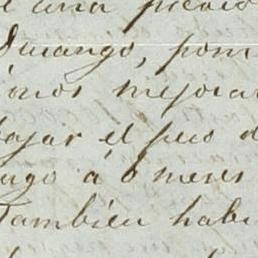 una
Durango, pon
mejora
bajar el peso d
ngo á 6 meses
Tambien habi